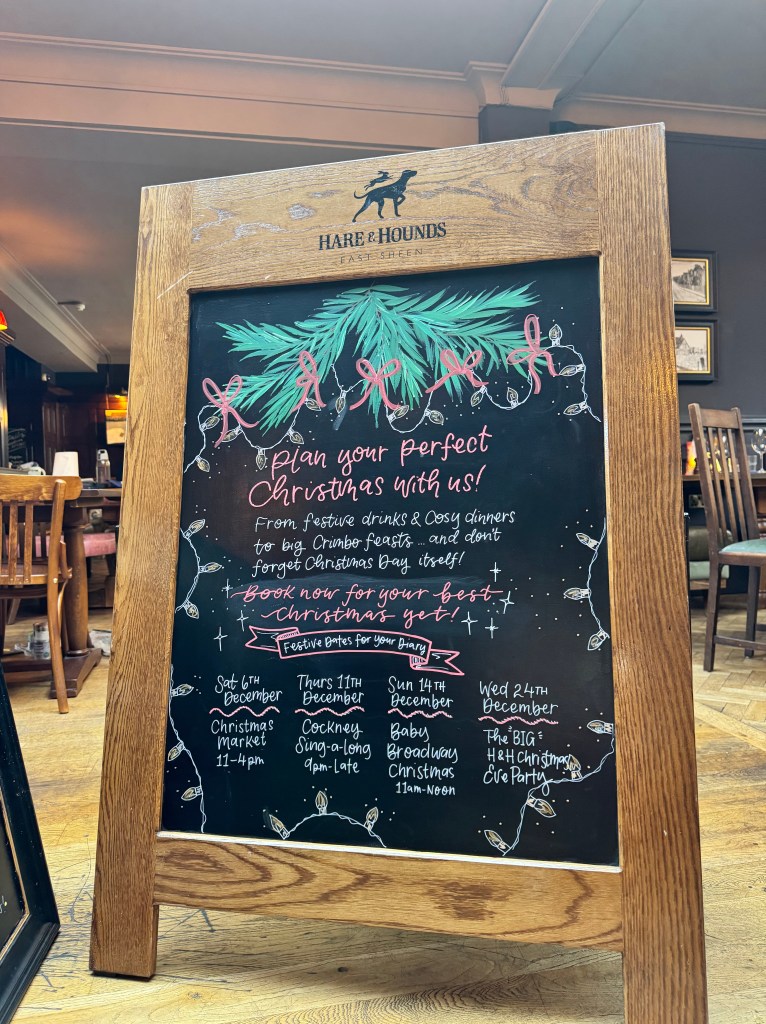 HARE & HOUNDS
EAST SHEEN
Plan your perfect
Christmas with us!
From festive drinks & cosy dinners
to big Crimbo feasts ... and don't
forget Christmas Day itself!
Book now for your best
Christmas yet!
Festive Dates for your Diary
Sat 6TH
December
Christmas
Market
11-4pm
Thurs 11TH
December
Cockney
Sing-a-long
9pm-Late
Sun 14TH
December
Baby
Broadway
Christmas
11am-Noon
Wed 24TH
December
The "BIG"
H&H Christmas
Eve Party